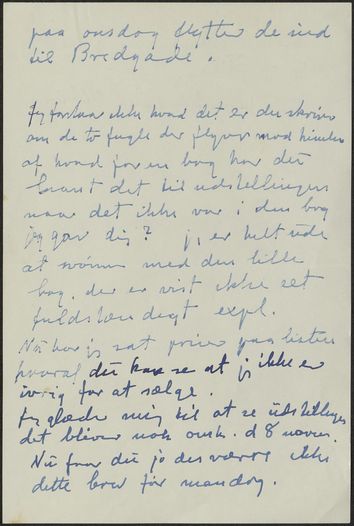 paa onsdag flytter de ind
til Bredgade.
Jeg forstaar ikke hvad det er du skriver
om de to fugle der flyver mod himlen
af hvad for en bog har du
laant det til udstillingen
naar det ikke var i den bog
jeg gav dig? jeg er helt ude
at svömme med den lille
bog, der er vist ikke ret
fuldstændigt expl.
Nu har jeg sat priser paa listen
hvoraf du kan se at jeg ikke er
ivrig for at sælge.
Jeg glæder mig til at se udstillingen
det bliver nok onsk. d 8 novem.
Nu faar du jo desværre ikke
dette brev för mandag.